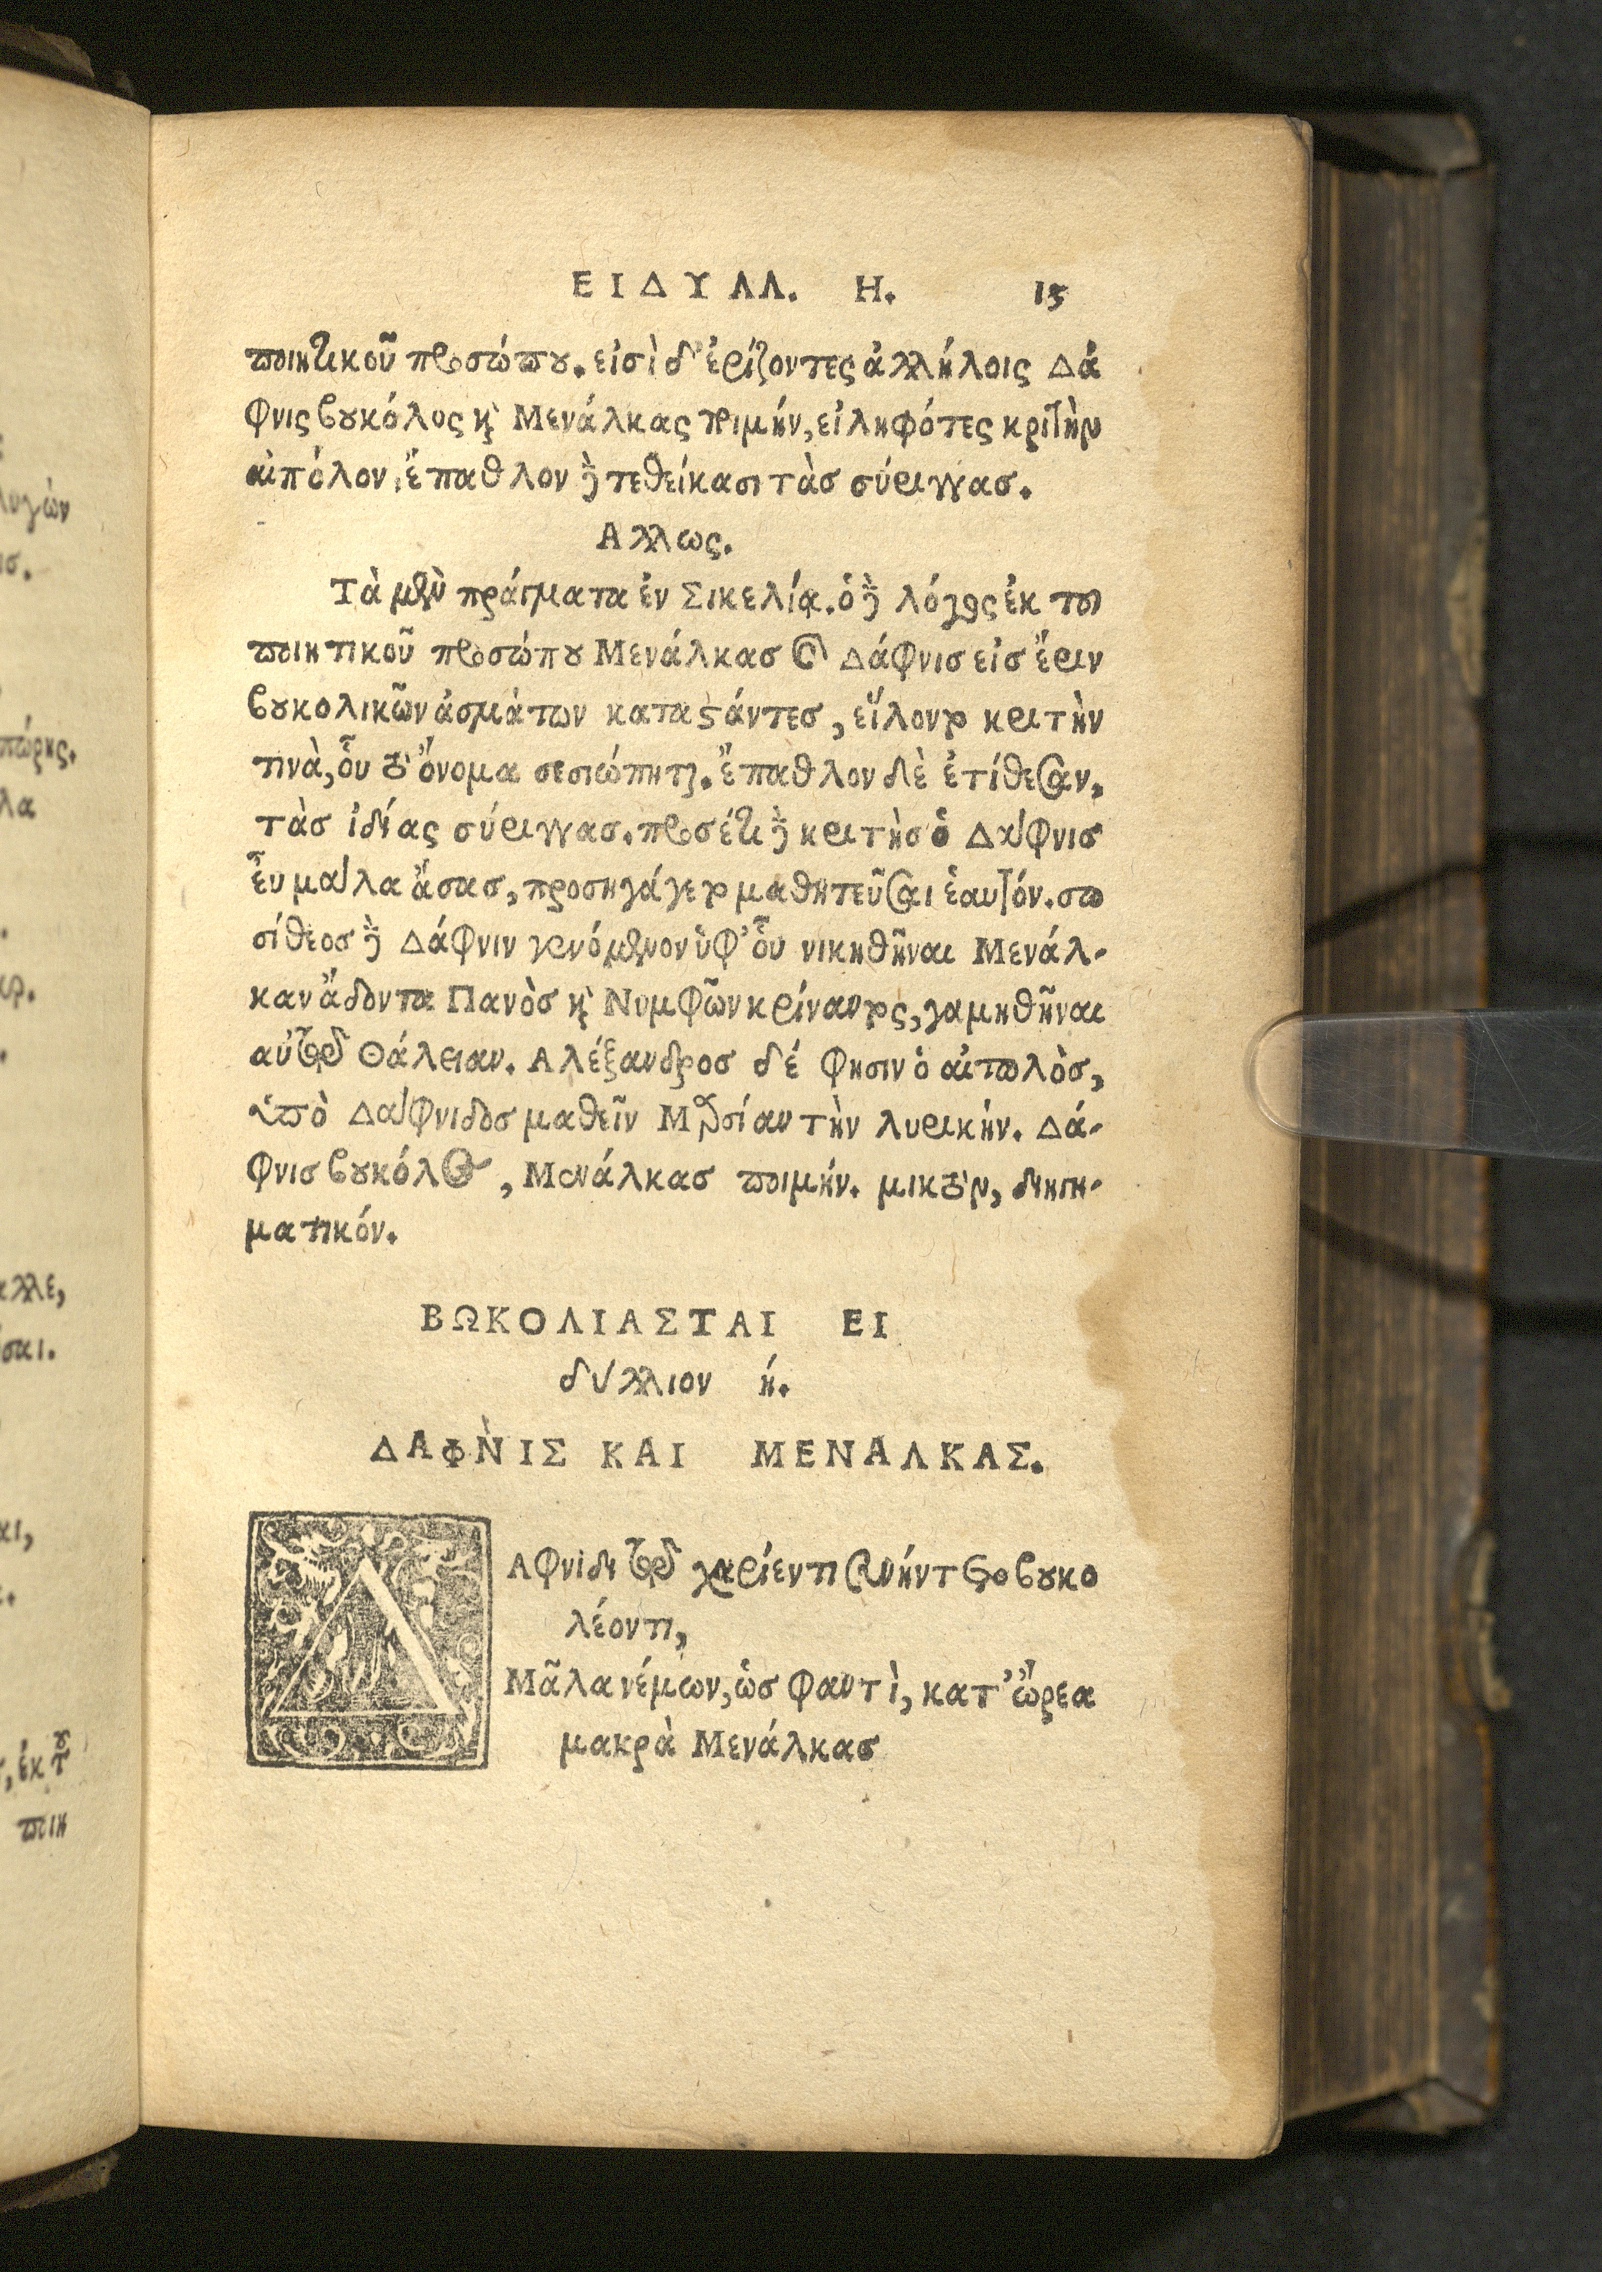 ΕΙΔΥΛΛ. Η. 15
ποιητικοῦ προσώπου. εἰσὶ δ' ἐρίζοντες ἀλλήλοις Δά
φνις βουκόλος καὶ Μενάλκας ποιμήν, εἰληφότες κριτὴν
αἰπόλον, ἔπαθλον δὲ τεθείκασι τὰσ σύριγγασ.
Αλλως.
Τὰ μὲν πράγματα ἐν Σικελίᾳ. ὁ δὲ λόγος ἐκ τοῦ
ποιητικοῦ προσώπου Μενάλκασ καὶ Δάφνισ εἰσ ἔριν
βουκολικῶν ἀσμάτων καταστάντεσ, εἵλοντο κριτὴν
τινὰ, οὗ τὸ ὄνομα σεσιώπηται. ἔπαθλον δὲ ἐτίθεσαν,
τὰσ ἰδίας σύριγγασ. προσέτι δὲ κριτὴσ ὁ Δάφνισ
εὖ μάλα ᾄσασ, προσηγάγετο μαθητεῦσαι ἑαυτόν. σω
σίθεοσ δὲ Δάφνιν γενόμενον ὑφ' οὗ νικηθῆναι Μενάλ-
καν ᾄδοντα Πανὸσ καὶ Νυμφῶν κρίναντος, γαμηθῆναι
αὐτῷ Θάλειαν. Αλέξανδροσ δέ φησιν ὁ αἰτωλὸσ,
ὑπὸ Δάφνιδοσ μαθεῖν Μαρσύαν τὴν λυρικήν. Δά-
φνισ βουκόλος, Μενάλκασ ποιμήν. μικτὸν, διηγη-
ματικόν.
ΒΩΚΟΛΙΑΣΤΑΙ ΕΙ
δύλλιον ή.
ΔΑΦΝΙΣ ΚΑΙ ΜΕΝΑΛΚΑΣ.
ΔΑφνιδι τῷ χαρίεντι συνήντετο βουκο
λέοντι,
Μᾶλα νέμων, ὡσ φαντὶ, κατ' ὤρεα
μακρὰ Μενάλκασ